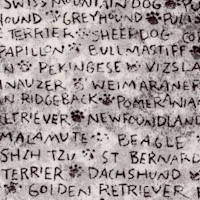 SWISS MOUNTAIN DOG
HOUND GREYHOUND PULI
TERRIER SHEEPDOG CO
PAPILLON BULLMASTIFF
N PEKINGESE VIZSLA
HNAUZER WEIMARANER
N RIDGEBACK POMERANIA
RETRIEVER NEWFOUNDLAND
MALAMUTE BEAGLE
SHIH TZU ST BERNARD
TERRIER DACHSHUND
GOLDEN RETRIEVER